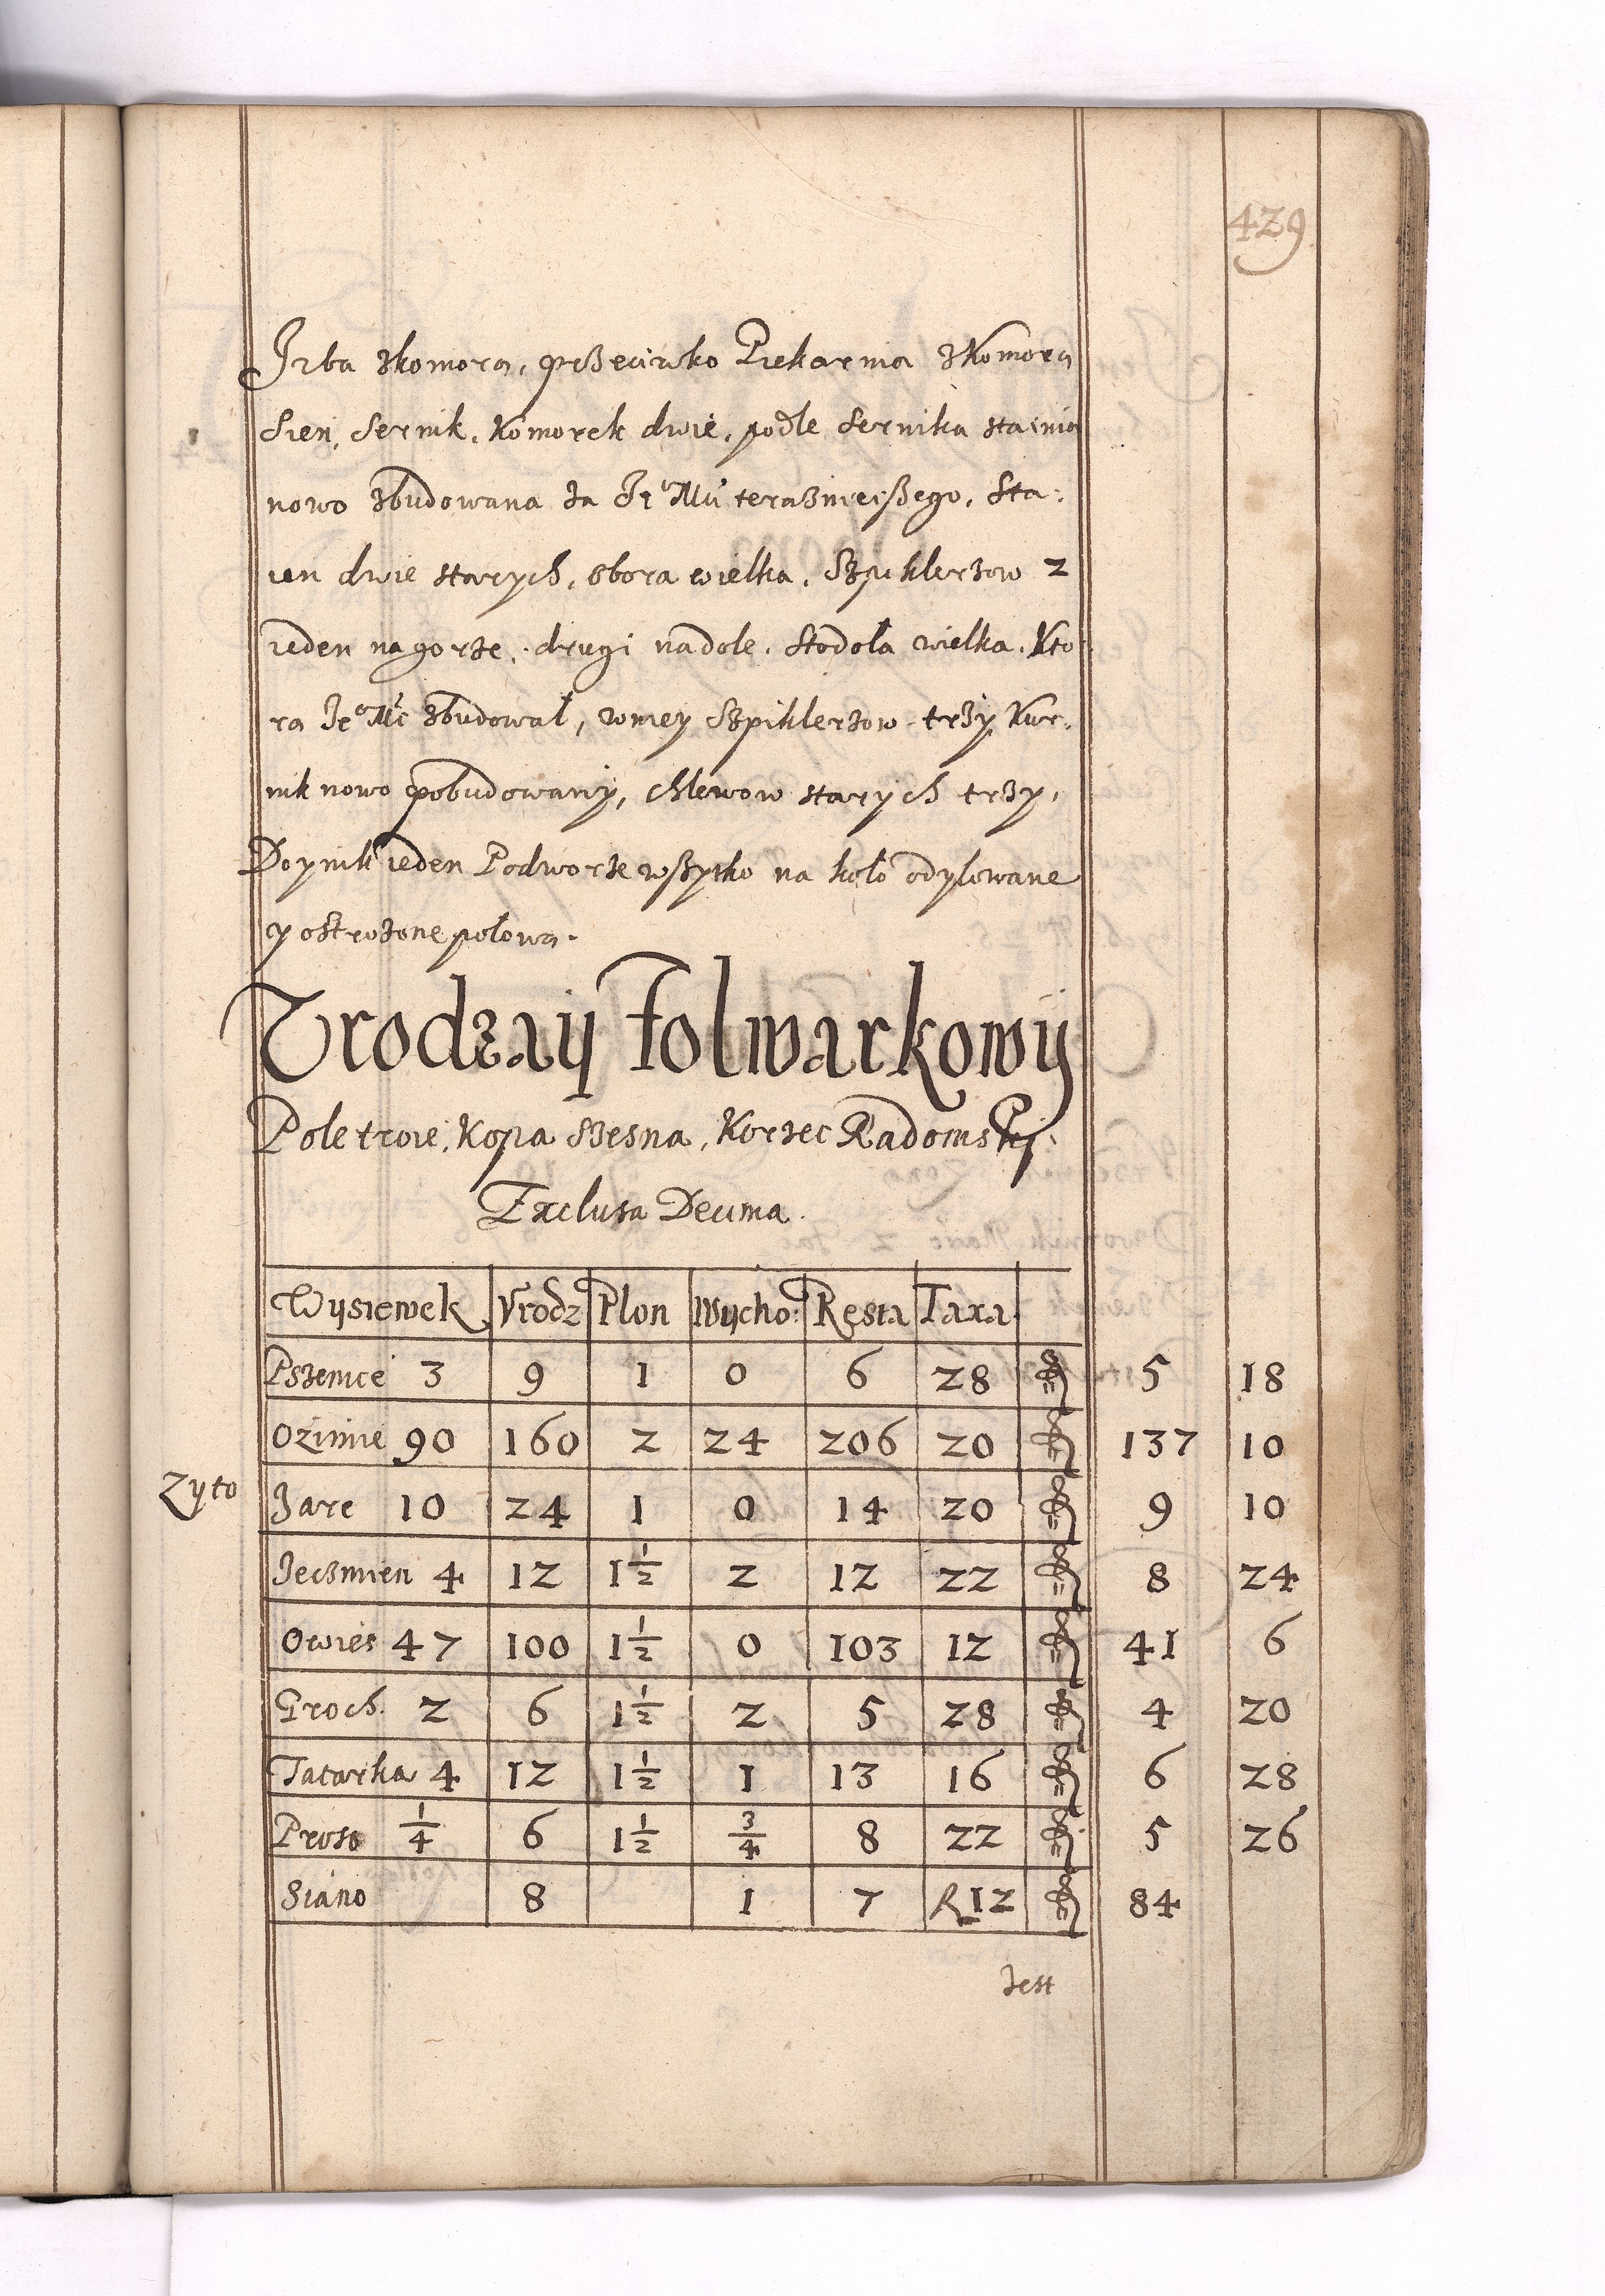 429
Jzba zkomorą, przeciwko Piekarnia zkomorą
Sien, Sernik, Komorek dwie, podle Sernika stainia
nowo zbudowana za Je° Mći teraznieiszego, Sta:
ien dwie starych, obora wielka, Szpiklerzow 2
ieden nagorze, drugi nadole, Stodoła wielka, Kto
ra Je° Mć zbudował, wniey Szpiklerzow trzy, Kur:
nik nowo pobudowany, chlewow starych trzy,
Doynik ieden Podworze wszystko na koło odylowane
y ostrożone połową.
Vrodzaij Folwarkowij
Pole troie, Kopa szesna, Korzec Radomski.
Exclusa Decima.
Wysiewek Vrodz Plon Wycho: Resta Taxa
Pszenice 3 9 1 0 6 28 5 18
Ozimie 90 160 2 24 206 20 137 10
Zyto Jare 10 24 1 0 14 20 9 10
Jeczmien 4 12 1 1/2 2 12 22 8 24
Owies 47 100 1 1/2 0 103 12 41 6
Groch. 2 6 1 1/2 2 5 28 4 20
Tatarka 4 12 1 1/2 1 13 16 6 28
Proso 1/4 6 1 1/2 3/4 8 22 5 26
Siano 8 1 7 R 12 84
Jest